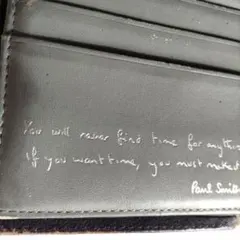 You will never find time for anything
if you want time, you must make it
Paul Smith